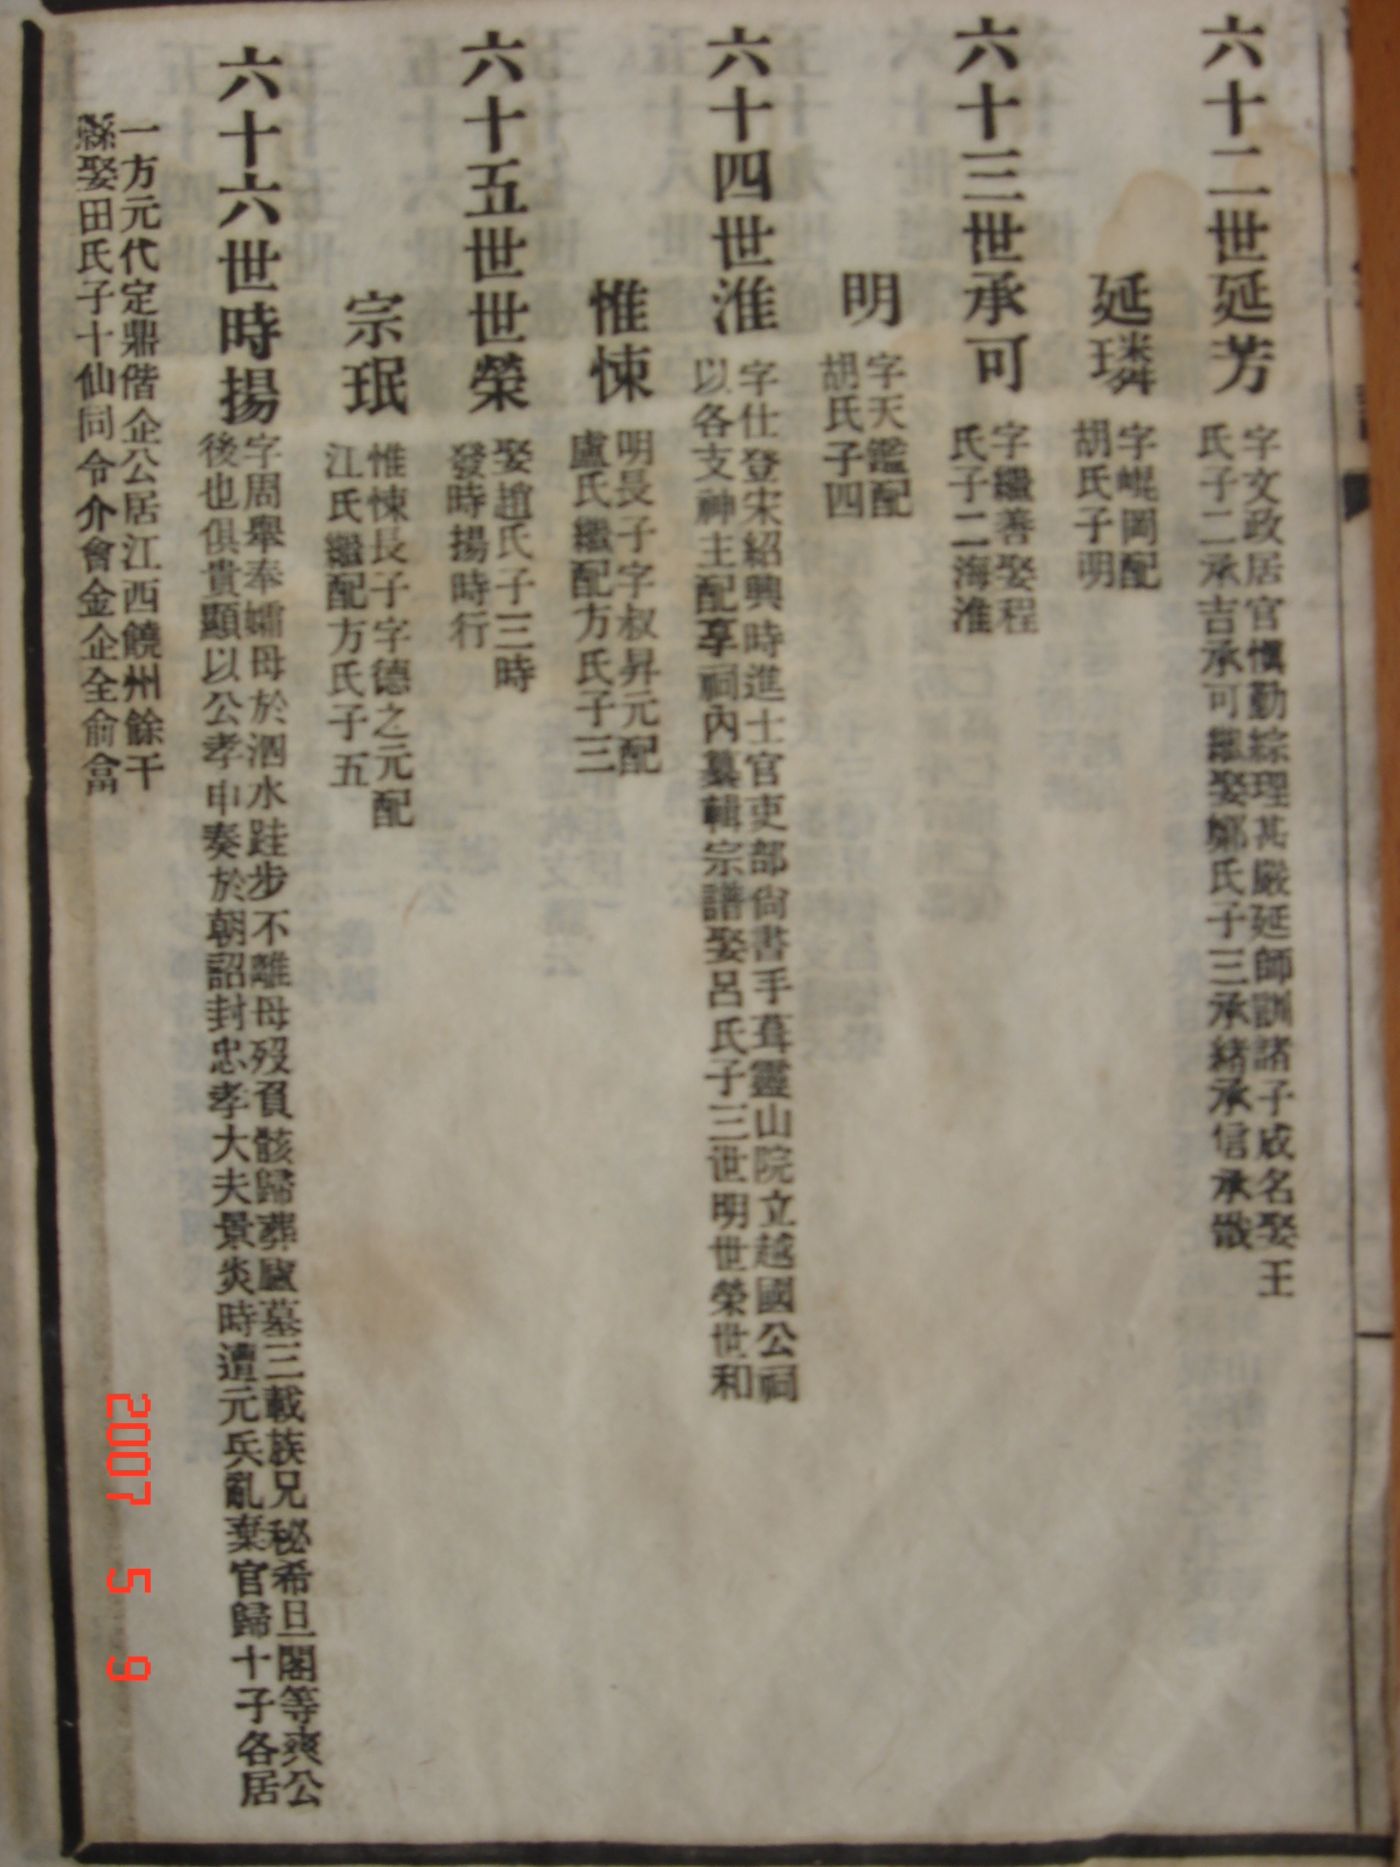 六十二世延芳
字文政居官慎勤綜理甚嚴延師訓諸子成名娶王
氏子二承吉承可繼娶鄭氏子三承緒承信承
延璘
字崐岡配
胡氏子明
六十三世承可
字繼善娶程
氏子二海淮
明
字天鑑配
胡氏子四
六十四世淮
字仕登宋紹興時進士官吏部尙書手葺靈山院立越國公祠
以各支神主配享祠內纂輯宗譜娶呂氏子三世明世榮世和
惟悚
明長子字叔昇元配
盧氏繼配方氏子三
六十五世世榮
娶趙氏子三時
發時揚時行
宗珉
惟悚長子字德之元配
江氏繼配方氏子五
六十六世時揚
字周舉奉孀母於泗水跬步不離母歿負骸歸葬廬墓三載族兄秘希旦閣等爽公
後也俱貴顯以公孝申奏於朝詔封忠孝大夫景炎時遭元兵亂棄官歸十子各居
一方元代定鼎偕企公居江西饒州餘干
縣娶田氏子十仙同令介會金企全俞
2007 5 9